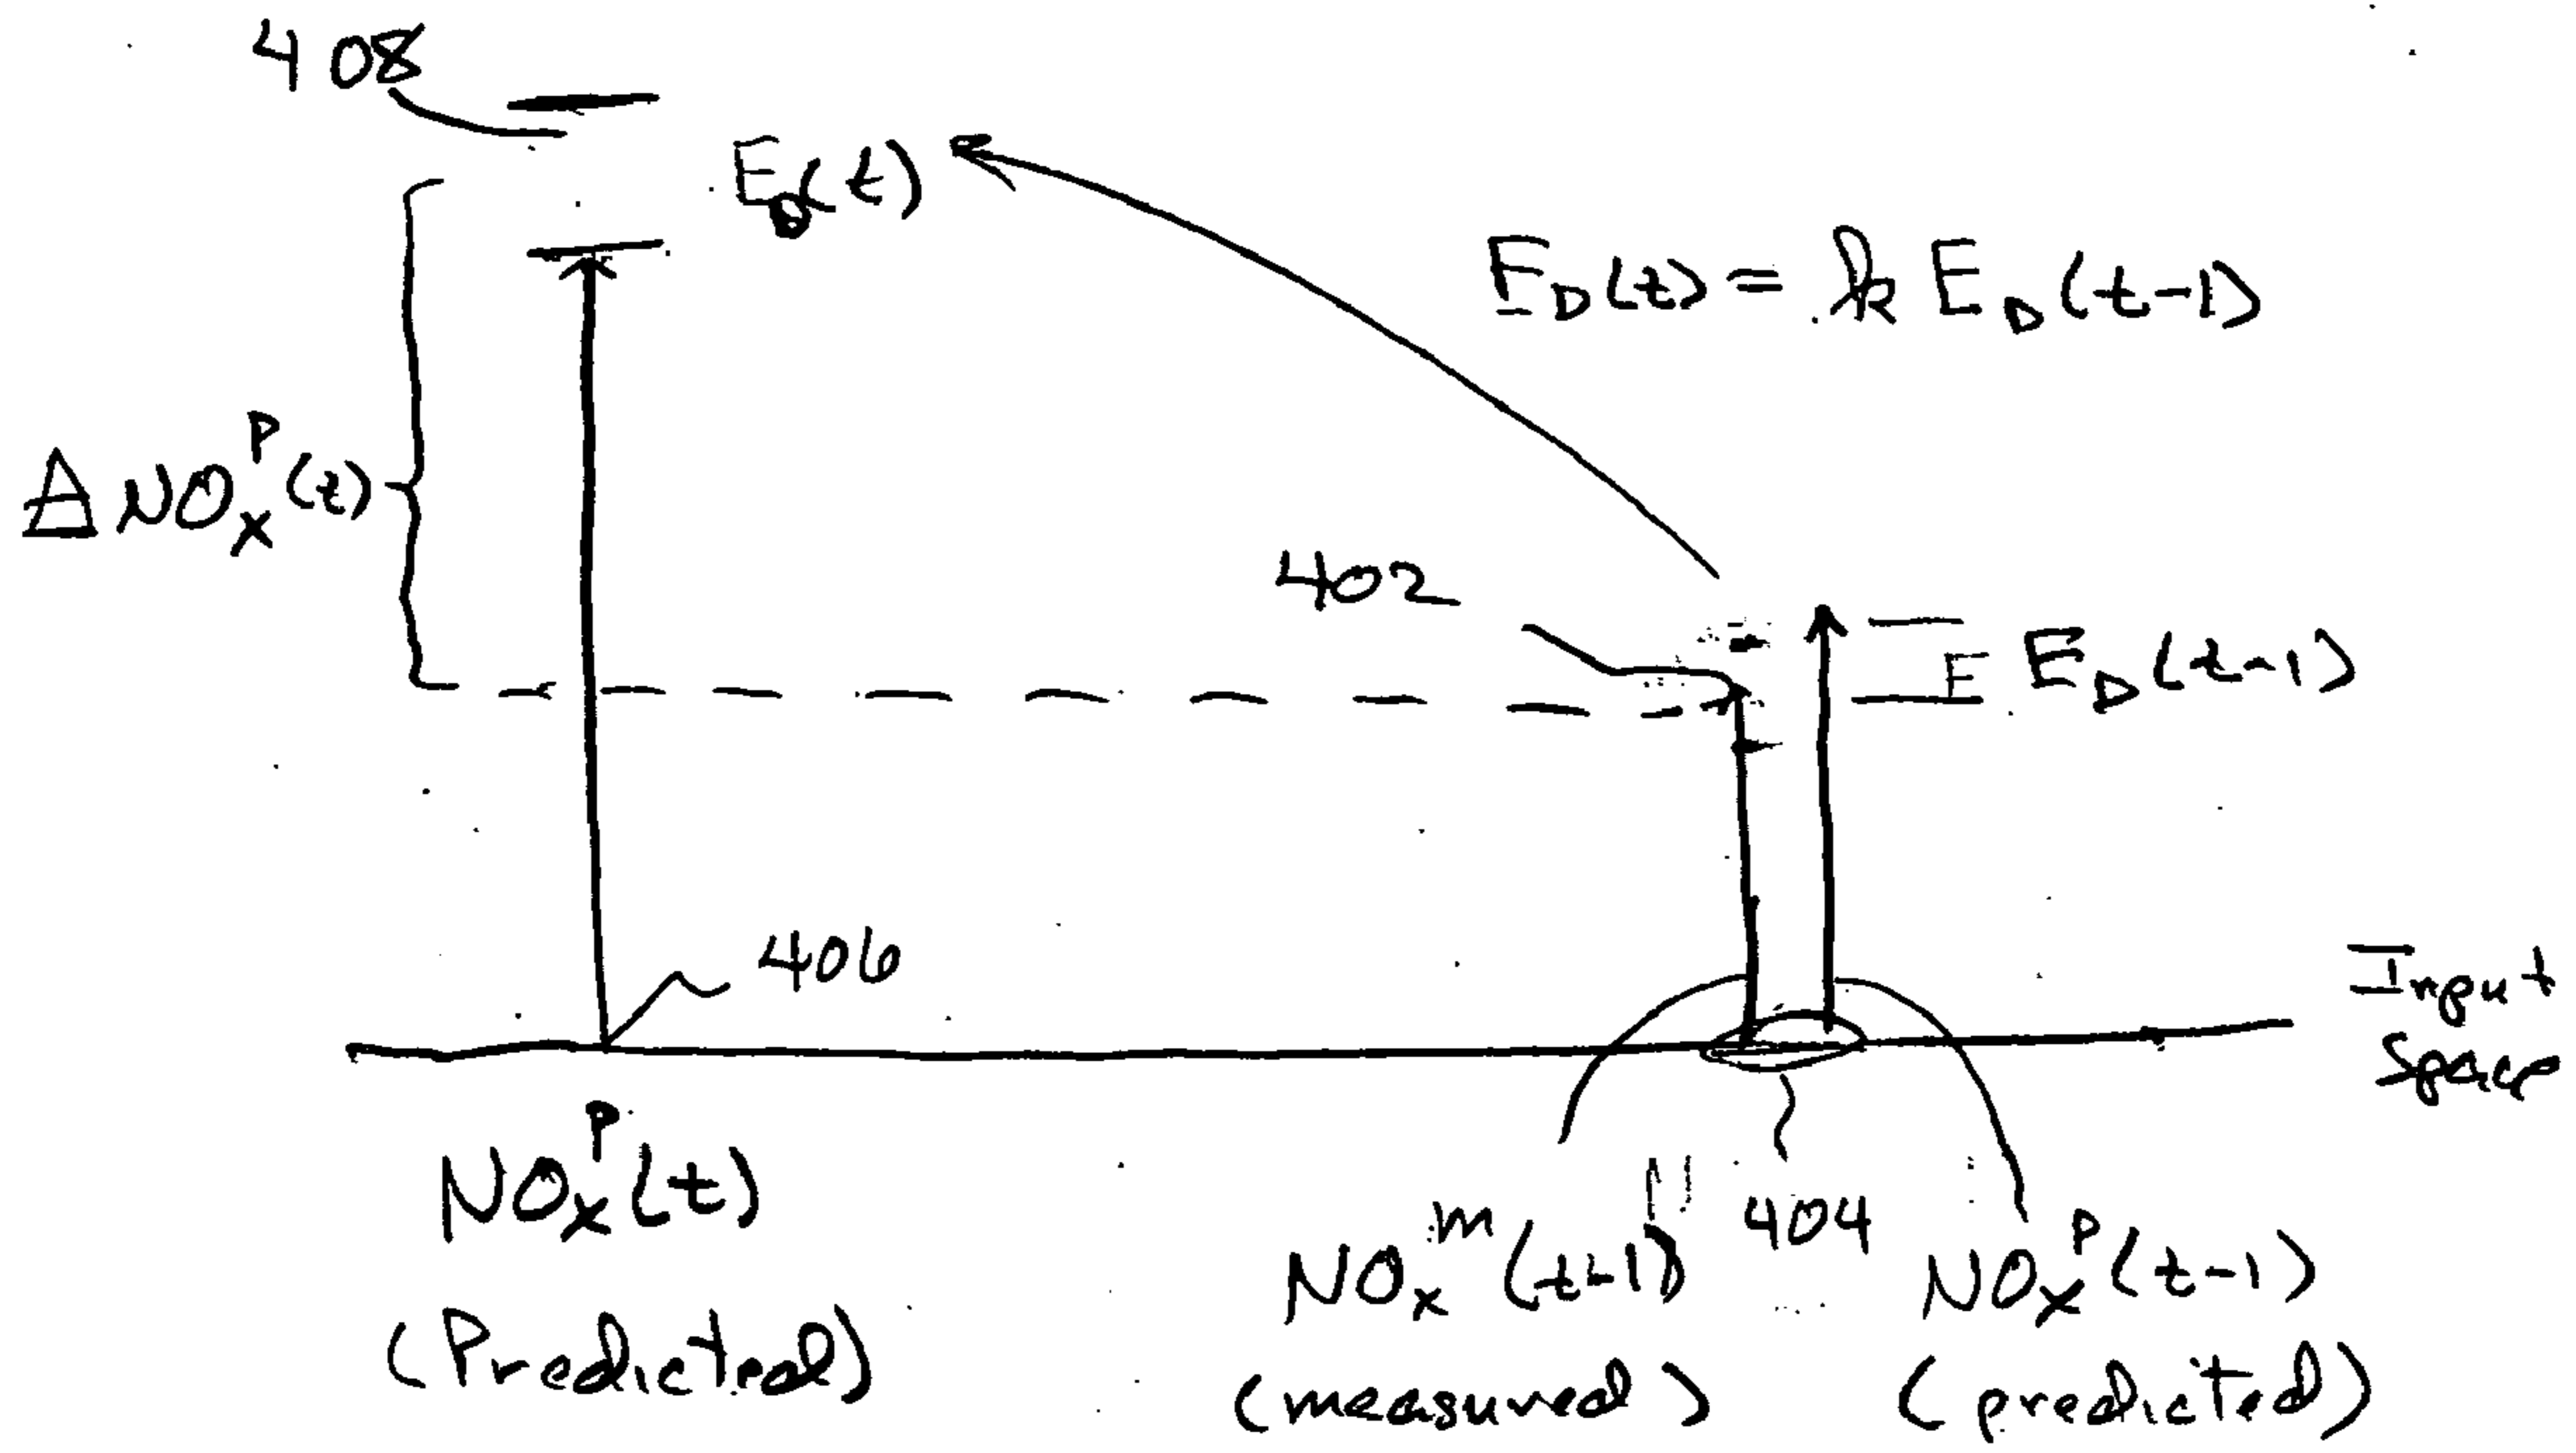 408
E_D(t)
E_D(t) = k E_D(t-1)
ΔNO_x^P(t)
402
E E_D(t-1)
406
Input
Space
NO_x^P(t)
(Predicted)
NO_x^m(t-1)
(measured)
404
NO_x^P(t-1)
(predicted)